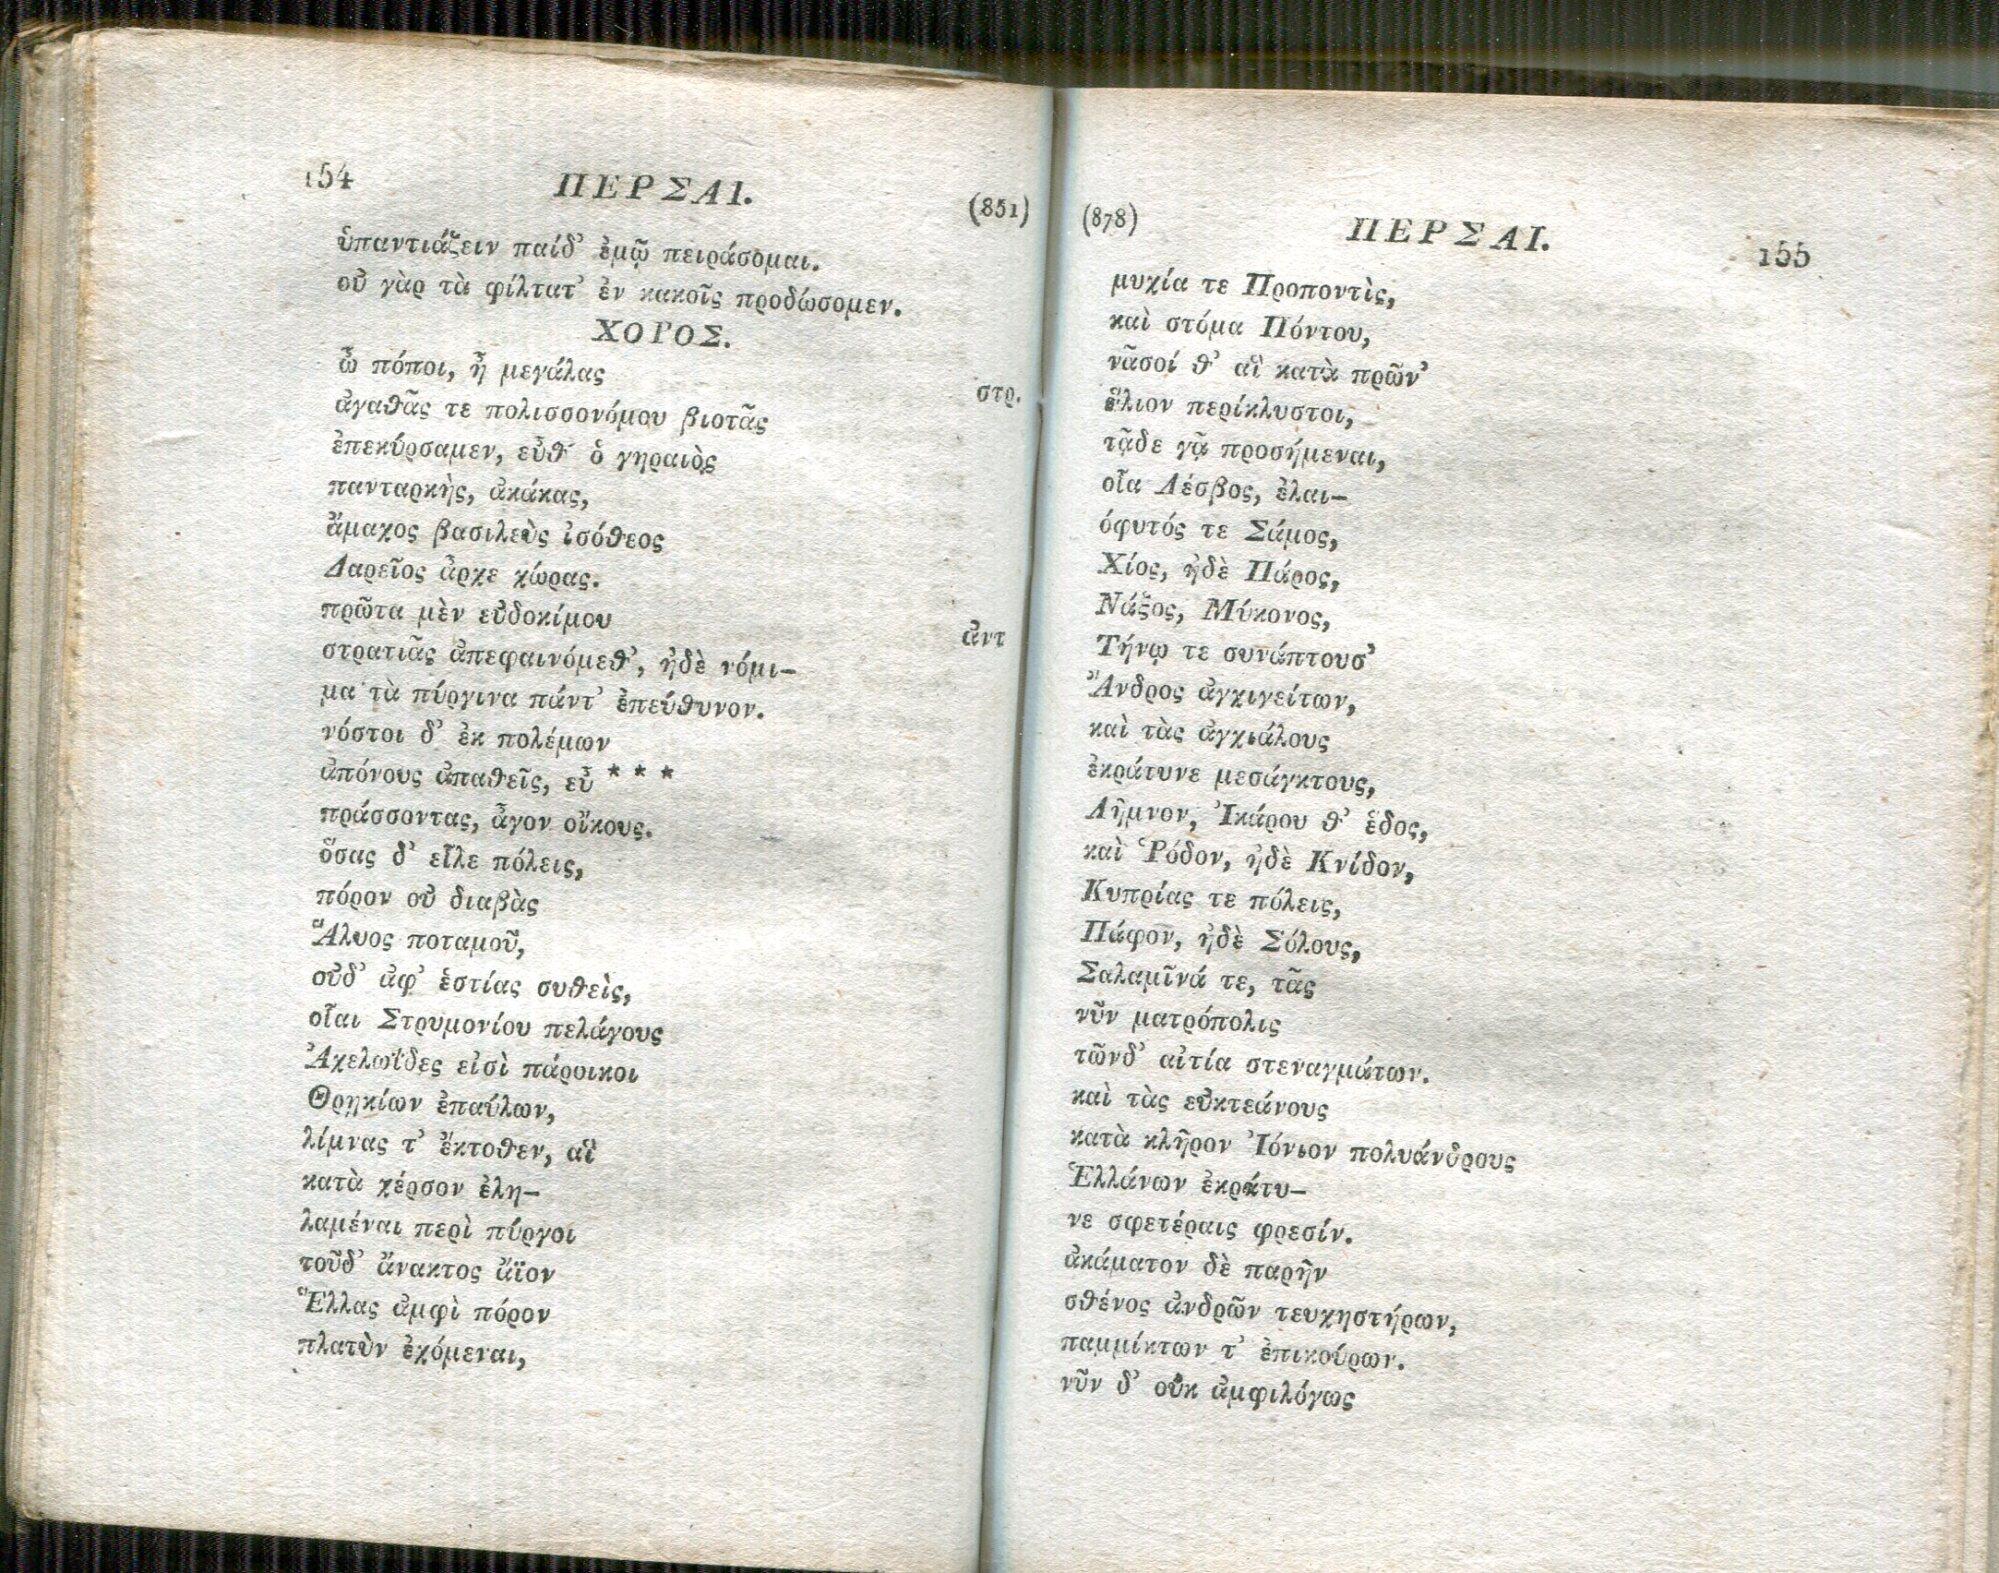 154 ΠΕΡΣΑΙ. (851)
ὑπαντιάζειν παίδ᾽ ἐμῷ πειράσομαι.
οὐ γὰρ τὰ φίλτατ᾽ ἐν κακοῖς προδώσομεν.
ΧΟΡΟΣ.
ὦ πόποι, ἦ μεγάλας στρ.
ἀγαθᾶς τε πολισσονόμου βιοτᾶς
ἐπεκύρσαμεν, εὖθ᾽ ὁ γηραιὸς
πανταρκὴς, ἀκάκας,
ἄμαχος βασιλεὺς ἰσόθεος
Δαρεῖος ἆρχε χώρας.
πρῶτα μὲν εὐδοκίμου ἀντ
στρατιᾶς ἀπεφαινόμεθ᾽, ἠδὲ νόμι-
μα τὰ πύργινα πάντ᾽ ἐπεύθυνον.
νόστοι δ᾽ ἐκ πολέμων
ἀπόνους ἀπαθεῖς, εὖ * * *
πράσσοντας, ἆγον οἴκους.
ὅσας δ᾽ εἷλε πόλεις,
πόρον οὐ διαβὰς
Ἅλυος ποταμοῦ,
οὐδ᾽ ἀφ᾽ ἑστίας συθεὶς,
οἷαι Στρυμονίου πελάγους
Ἀχελωΐδες εἰσὶ πάροικοι
Θρῃκίων ἐπαύλων,
λίμνας τ᾽ ἔκτοθεν, αἳ
κατὰ χέρσον ἐλη-
λαμέναι περὶ πύργοι
τοῦδ᾽ ἄνακτος ἄϊον
Ἕλλας ἀμφὶ πόρον
πλατὺν ἐχόμεναι,
(878) ΠΕΡΣΑΙ. 155
μυχία τε Προποντὶς,
καὶ στόμα Πόντου,
νᾶσοί θ᾽ αἳ κατὰ πρῶν᾽
ἕλιον περίκλυστοι,
τᾷδε γᾷ προσήμεναι,
οἷα Λέσβος, ἐλαι-
όφυτός τε Σάμος,
Χίος, ἠδὲ Πάρος,
Νάξος, Μύκονος,
Τήνῳ τε συνάπτουσ᾽
Ἄνδρος ἀγχιγείτων,
καὶ τὰς ἀγχιάλους
ἐκράτυνε μεσάγκτους,
Λῆμνον, Ἰκάρου θ᾽ ἕδος,
καὶ Ῥόδον, ἠδὲ Κνίδον,
Κυπρίας τε πόλεις,
Πάφον, ἠδὲ Σόλους,
Σαλαμῖνά τε, τᾶς
νῦν ματρόπολις
τῶνδ᾽ αἰτία στεναγμάτων.
καὶ τὰς εὐκτεάνους
κατὰ κλῆρον Ἰόνιον πολυάνδρους
Ἑλλάνων ἐκράτυ-
νε σφετέραις φρεσίν.
ἀκάματον δὲ παρῆν
σθένος ἀνδρῶν τευχηστήρων,
παμμίκτων τ᾽ ἐπικούρων.
νῦν δ᾽ οὐκ ἀμφιλόγως